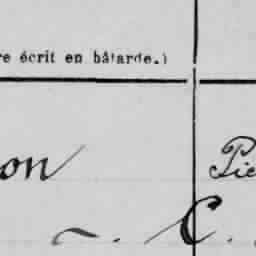 re écrit en bâtarde.)
on Pie
~. C.